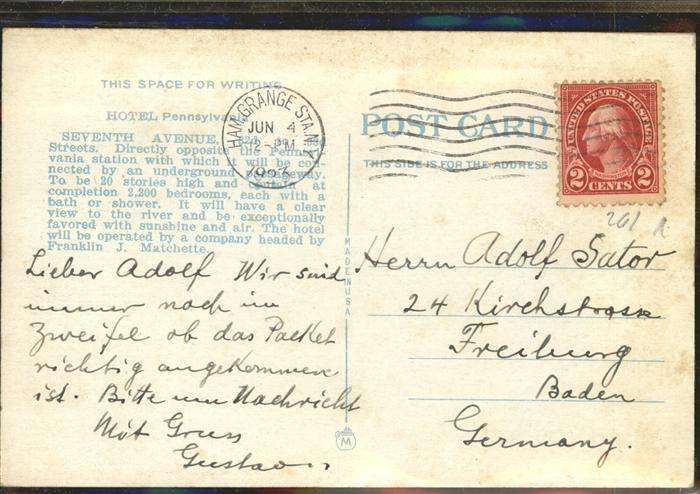 THIS SPACE FOR WRITING
HOTEL Pennsylvania
SEVENTH AVENUE,
Streets. Directly opposite the Pennsyl-
vania station with which it will be con-
nected by an underground passageway.
To be 20 stories high and contain at
completion 2,200 bedrooms, each with a
bath or shower. It will have a clear
view to the river and be exceptionally
favored with sunshine and air. The hotel
will be operated by a company headed by
Franklin J. Matchette.
Lieber Adolf Wir sind
immer noch im
Zweifel ob das Packet
richtig angekommen
ist. Bitte um Nachricht
Mit Gruss
Gustav
HAM. GRANGE STA. N.Y.
JUN 4
MADE IN USA
M
POST CARD
THIS SIDE IS FOR THE ADDRESS
UNITED STATES POSTAGE
2 CENTS 2
261
Herrn Adolf Sator
24 Kirchstrasse
Freiburg
Baden
Germany.